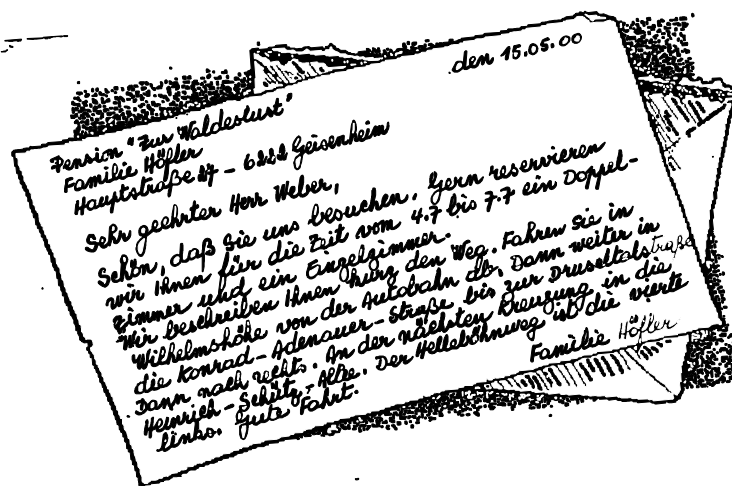 den 15.05.00
Pension "Zur Waldeslust"
Familie Höfler
Hauptstraße 27 - 6222 Geisenheim
Sehr geehrter Herr Weber,
Schön, daß Sie uns besuchen. Gern reservieren
wir Ihnen für die Zeit vom 4.7 bis 7.7 ein Doppel-
zimmer und ein Einzelzimmer.
Wir beschreiben Ihnen kurz den Weg. Fahren Sie in
Wilhelmshöhe von der Autobahn ab. Dann weiter in
die Konrad-Adenauer-Straße bis zur Druseltalstraße
Dann nach rechts. An der nächsten Kreuzung in die
Heinrich-Schütz-Allee. Der Hellebohnweg ist die vierte
links. Gute Fahrt.
Familie Höfler